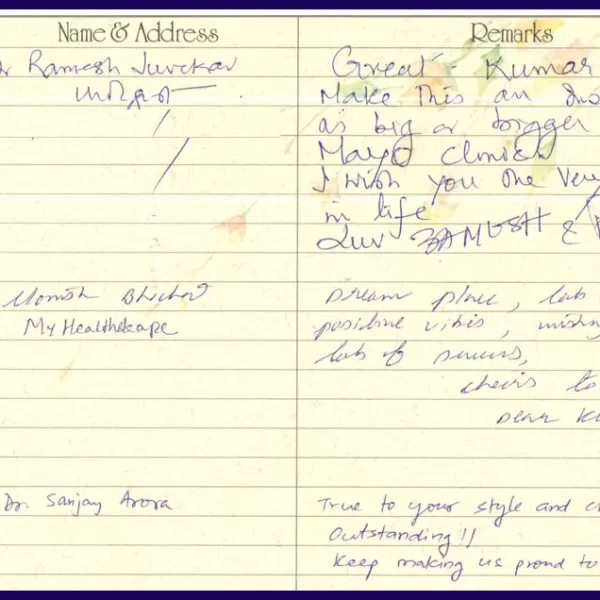 Name & Address
Remarks
Ramesh Juvekar
Great - Kumar
Make This an
as big or bigger
Mayo Clinic
I wish you the
in life
Luv RAMESH &
MyHealthskape
Dream place, lots
positive vibes,
lots of success,
cheers to
Dear
Dr. Sanjay Arora
True to your style and
Outstanding!!
Keep making us proud to